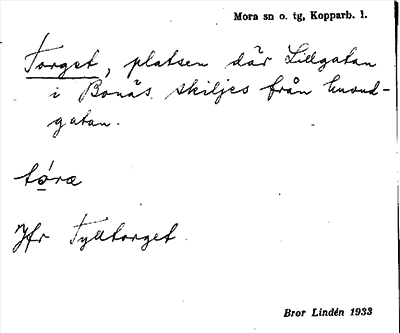 Mora sn o. tg, Kopparb. l.
Torget, platsen där Lillgatan
i Bonäs skiljes från huvud-
gatan.
tǿra
Jfr Tylltorget
Bror Lindén 1933